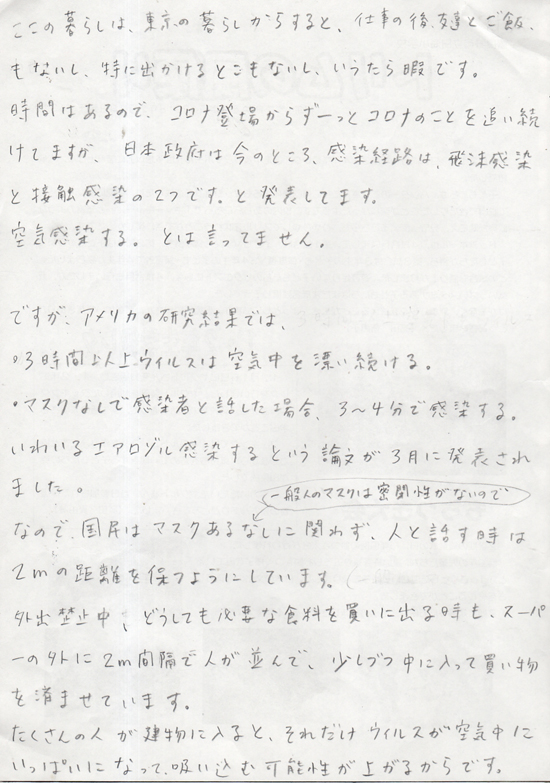 ここの暮らしは、東京の暮らしからすると、仕事の後、友達とご飯、
もないし、特に出かけるとこもないし、いうたら暇です。
時間はあるので、コロナ登場からずーっとコロナのことを追い続
けてますが、日本政府は今のところ、感染経路は、飛沫感染
と接触感染の2つです。と発表してます。
空気感染する。とは言ってません。
ですが、アメリカの研究結果では、
・3時間以上ウイルスは空気中を漂い続ける。
・マスクなしで感染者と話した場合、3〜4分で感染する。
いわいるエアロゾル感染するという論文が3月に発表され
ました。
一般人のマスクは密閉性がないので
なので、国民はマスクあるなしに関わず、人と話す時は
2mの距離を保つようにしています。
外出禁止中、どうしても必要な食料を買いに出る時も、スーパ
ーの外に2m間隔で人が並んで、少しづつ中に入って買い物
を済ませています。
たくさんの人が建物に入ると、それだけウイルスが空気中に
いっぱいになって、吸い込む可能性が上がるからです。